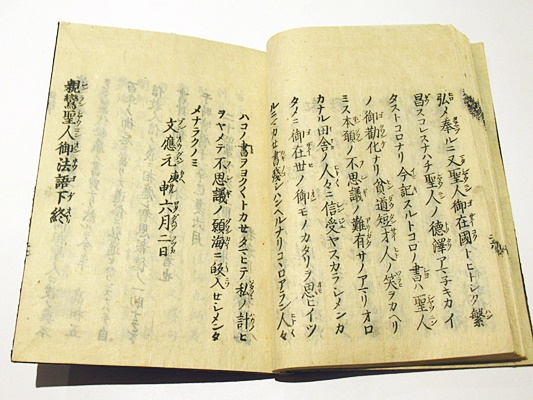 弘メ奉ルニ又聖人御在國トヒトシク繁
昌スコレスナハチ聖人ノ德澤アマネキカイ
タストコロナリ今記スルトコロノ書ハ聖人
ノ御勸化ナリ貧道短才人ノ笑ヲカヘリ
ミス本願ノ不思議ノ難有サノアマリオロ
カナル田舎ノ人々ニ信受ヤスカラシメンカ
タメニ御在世ノ御モノカタリヲ思ヒイツ
ルニマカセ書殘シハンヘルナリコヽロアラン人々
ハコノ書ヲヨクトカセタマヒテ私ノ計ヒ
ヲヤメテ不思議ノ願海ニ皈入セシメタ
メナラクノミ
文應元庚申六月二日
親鸞聖人御法語下終